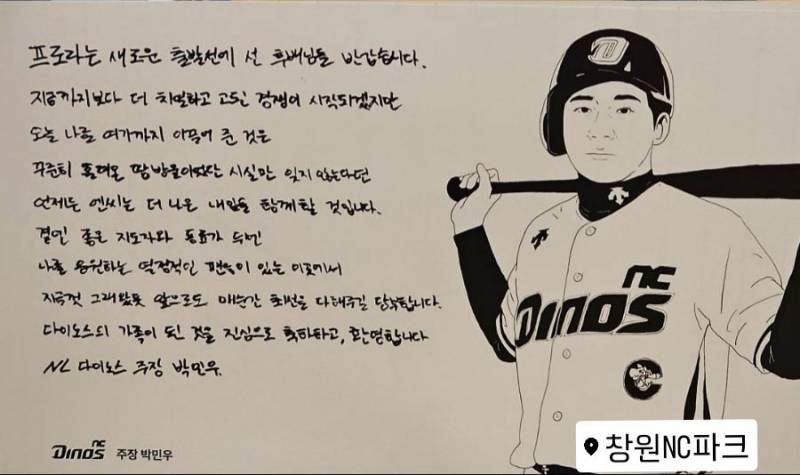 프로라는 새로운 출발선에 선 후배님들 반갑습니다.
지금까지보다 더 치열하고 고된 경쟁이 시작되겠지만
오늘 나를 여기까지 이끌어 준 것은
꾸준히 흘려온 땀방울이었단 사실만 잊지 않는다면
언제든 엔씨는 더 나은 내일을 함께할 것입니다.
곁엔 좋은 지도자와 동료가 수반
나를 응원하는 열정적인 팬들이 있는 이곳에서
지금껏 그래왔듯 앞으로도 매순간 최선을 다해주길 당부합니다.
다이노스의 가족이 된 것을 진심으로 축하하고, 환영합니다
NC 다이노스 주장 박민우
Dinos nc 주장 박민우
nc
Dinos
창원NC파크